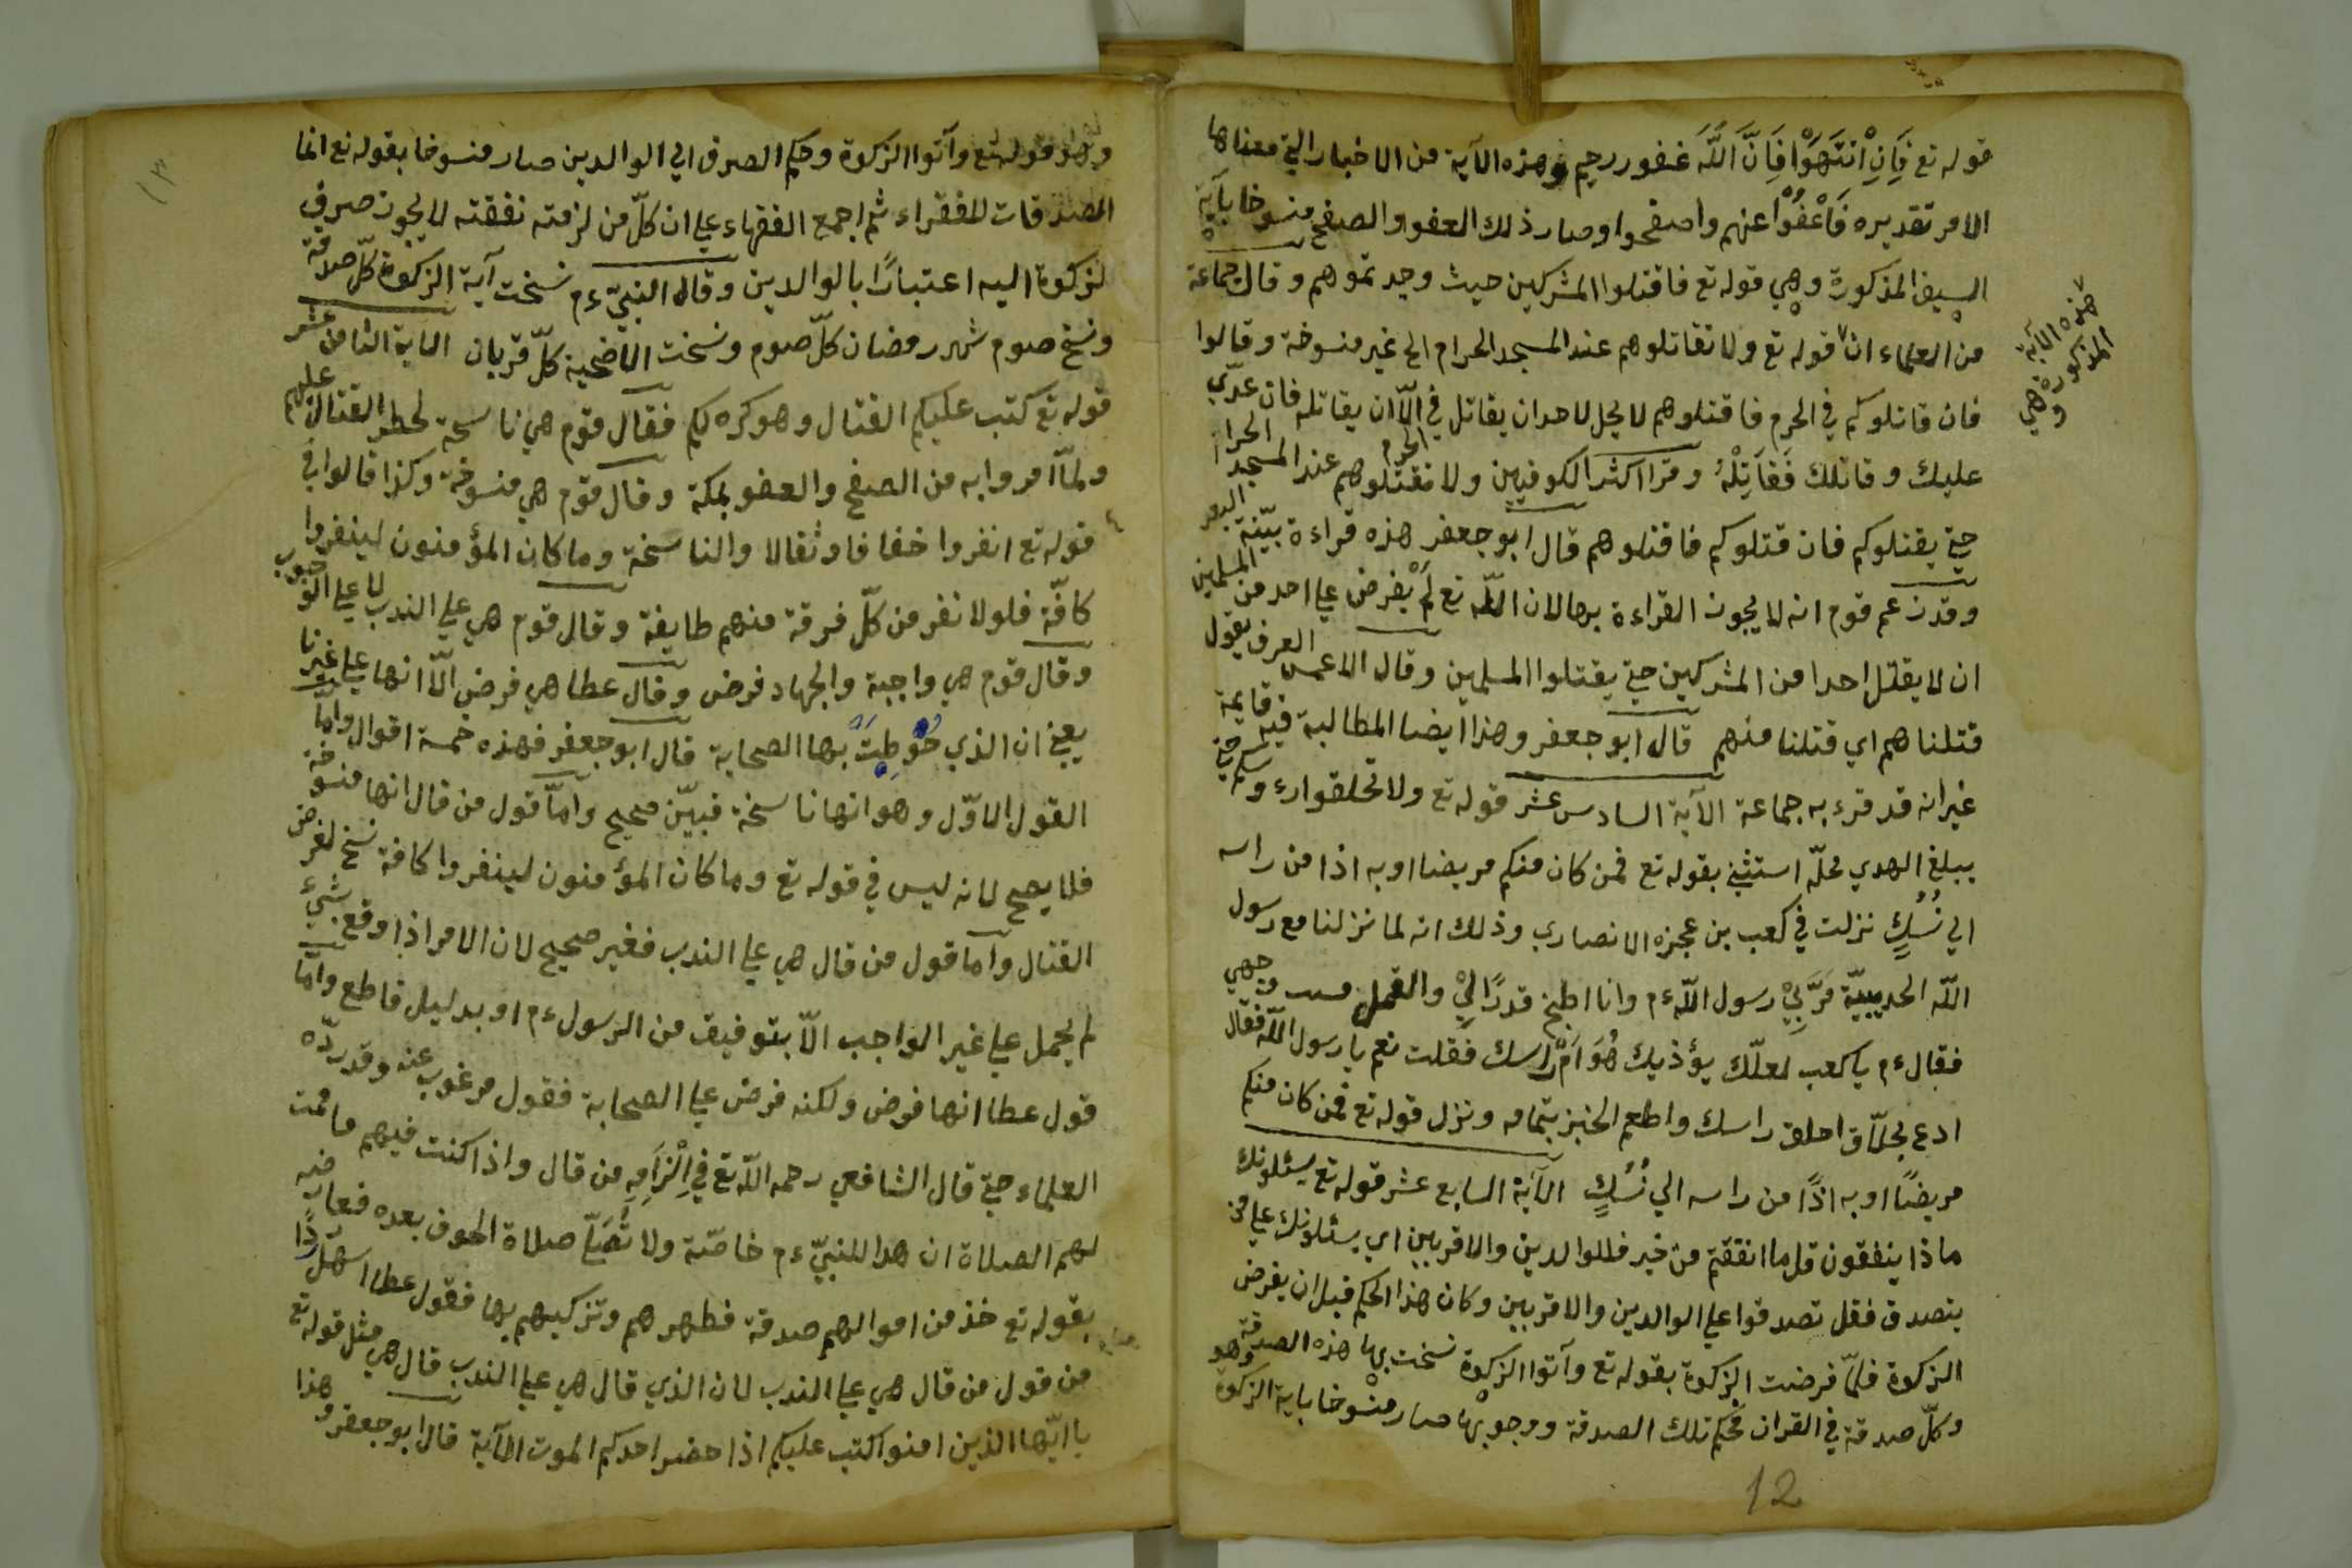 قوله تع فَاِنِ انْتَهَوْا فَاِنَّ اللّٰهَ غفور رحيم وهذه الآية من الاخبار التي معناها
الامر تقديره فَاعْفُوْا عنهم واصفحوا وصار ذلك العفو والصفح منسوخا بآية
السيف المذكورة وهي قوله تع فاقتلوا المشركين حيث وجدتموهم وقال جماعة
من العلماء ان قوله تع ولا تقاتلوهم عند المسجد الحرام الخ غير منسوخة وقالوا
هذه الآية المذكورة وهي
فان قاتلوكم في الحرم فاقتلوهم لا يحل لاحد ان يقاتل في الحرم الّا ان يقاتله فان عدّي
عليك وقاتلك فَقَاتِلْهُ وقرا اكثر الكوفيين ولا تقتلوهم عند المسجد الحرام
حتي يقتلوكم فان قتلوكم فاقتلوهم قال ابو جعفر هذه قراءة بيّنة البعد
وقد زعم قوم انه لا يجوز القراءة بها لان اللّه تع لَمْ يفرض علي احد من المسلمين
ان لا يقتل احدا من المشركين حتي يقتلوا المسلمين وقال الاعمش العرف يقول
قتلناهم اي قتلنا منهم قال ابو جعفر وهذا ايضا المطالبة فيه قايمة
غير انه قد قرء به جماعة الآية السادس عشر قوله تع ولا تحلقوا رءوسكم حتي
يبلغ الهدي محلّه استثني بقوله تع فمن كان منكم مريضا او به اذا من راسه
الي نُسُكٍ نزلت في كعب بن عجزه الانصاري وذلك انه لما نزلنا مع رسول
اللّه الحديبيّة مَرَّبِيْ رسول اللّه ءم وانا اطبخ قدرًا لِيْ والقمل وجهي
فقال ءم يا كعب لعلّك يؤذيك هُوَامّ راسك فقلت نعم يا رسول اللّه فقال
ادع بحلّاق احلق راسك واطعم الخبز بتمامه ونزل قوله تع فمن كان منكم
مريضًا او به اذًا من راسه الي نُسُكٍ الآية السابع عشر قوله تع يسئلونك
ماذا ينفقون قل ما انفقتم من خير فللوالدين والاقربين اي يسئلونك علي من
يتصدق فقل تصدقوا علي الوالدين والاقربين وكان هذا الحكم قبل ان يفرض
الزكوة فلمّا فرضت الزكوة بقوله تع وآتوا الزكوة نسخت بها هذه الصدقة
وكلّ صدقة في القران فحكم تلك الصدقة ووجوبها صار منسوخا باية الزكوة وهو
12
وهو قوله تع وآتوا الزكوة وحكم الصرف الي الوالدين صار منسوخا بقوله تع انما
الصدقات للفقراء ثم اجمع الفقهاء علي ان كلّ من لزمته نفقته لا يجوز صرف
لزكوة اليه اعتبارًا بالوالدين وقال النبيّ ءم نسخت آية الزكوة كلّ صدقة
ونسخ صوم شهر رمضان كلّ صوم ونسخت الاضحية كلّ قربان الاية الثامن عشر
قوله تع كتب عليكم القتال وهو كره لكم فقال قوم هي ناسخة لحظر القتال عليهم
ولمّا امروا به من الصفح والعفو بمكة وقال قوم هي منسوخة وكذا قالوا في
قوله تع انفروا خفافا وثقالا والناسخة وما كان المؤمنون لينفروا
كافّة فلولا نفر من كلّ فرقة منهم طايفة وقال قوم هي علي الندب لا علي الوجوب
وقال قوم هي واجبة والجهاد فرض وقال عطا هي فرض الّا انها علي غيرنا
يعني ان الذي خُوطِبَ بها الصحابة قال ابو جعفر فهذه خمسة اقوال واما
القول الاوّل وهو انها ناسخة فبيّن صحيح وامّا قول من قال انها منسوخة
فلا يصح لانه ليس في قوله تع وما كان المؤمنون لينفروا كافة نسخ لفرض
القتال واما قول من قال هي علي الندب فغير صحيح لان الامر اذا وقع بشيء
لم يحمل علي غير الواجب الّا بتوفيق من الرسول ءم او بدليل قاطع وامّا
قول عطا انها فرض ولكنه فرض علي الصحابة فقول مرغوب عنه وقد ردّه
العلماء حتي قال الشافعي رحمه اللّه تع في اِلْزَامِهِ من قال واذا كنت فيهم فاقمت
لهم الصلاة ان هدا للنبيّ ءم خاصّة ولا تُصَلّ صلاة الخوف بعده فعارضه
بقوله تع خذ من اموالهم صدقة فطهرهم وتزكيهم بها فقول عطا اسهل ردًّا
من قول من قال هي علي الندب لان الذي قال هي علي الندب قال هي مثل قوله تع
يا ايّها الذين امنوا كتب عليكم اذا حضر احدكم الموت الآية قال ابو جعفر وهذا